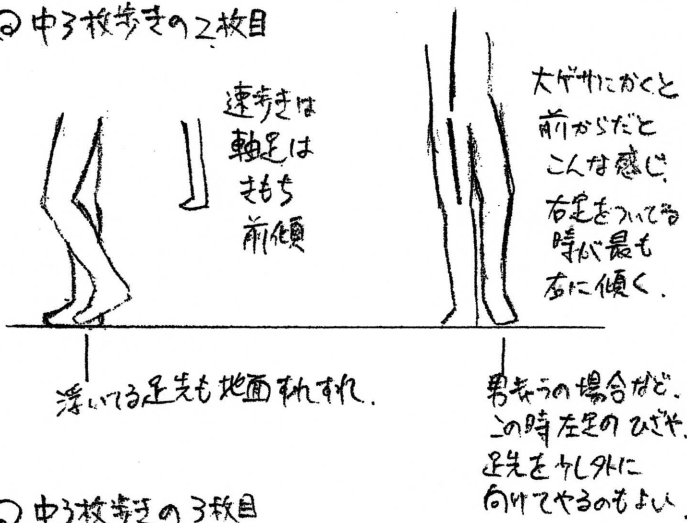 ② 中3枚歩きの2枚目
速歩きは
軸足は
きもち
前傾
大ゲサにかくと
前からだと
こんな感じ.
右足をついてる
時が最も
右に傾く.
浮いてる足先も地面すれすれ.
の場合など.
この時左足のひざや.
足先を少し外に
向けてやるのもよい.
中3枚歩きの3枚目